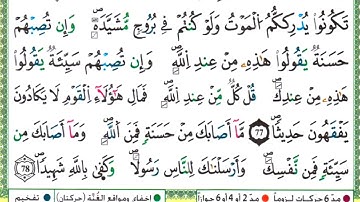 تَكُونُوا۟ يُدْرِككُّمُ ٱلْمَوْتُ وَلَوْ كُنتُمْ فِى بُرُوجٍ مُّشَيَّدَةٍ ۗ وَإِن تُصِبْهُمْ
حَسَنَةٌ يَقُولُوا۟ هَٰذِهِۦ مِنْ عِندِ ٱللَّهِ ۖ وَإِن تُصِبْهُمْ سَيِّئَةٌ يَقُولُوا۟
هَٰذِهِۦ مِنْ عِندِكَ ۚ قُلْ كُلٌّ مِّنْ عِندِ ٱللَّهِ ۖ فَمَالِ هَٰٓؤُلَآءِ ٱلْقَوْمِ لَا يَكَادُونَ
يَفْقَهُونَ حَدِيثًا 77 مَّآ أَصَابَكَ مِنْ حَسَنَةٍ فَمِنَ ٱللَّهِ ۖ وَمَآ أَصَابَكَ مِن
سَيِّئَةٍ فَمِن نَّفْسِكَ ۚ وَأَرْسَلْنَٰكَ لِلنَّاسِ رَسُولًا ۚ وَكَفَىٰ بِٱللَّهِ شَهِيدًا 78
مدّ 6 حركات لزوماً مدّ 2 أو 4 أو 6 جوازاً إخفاء ومواقع الغُنَّة (حركتان) تفخيم